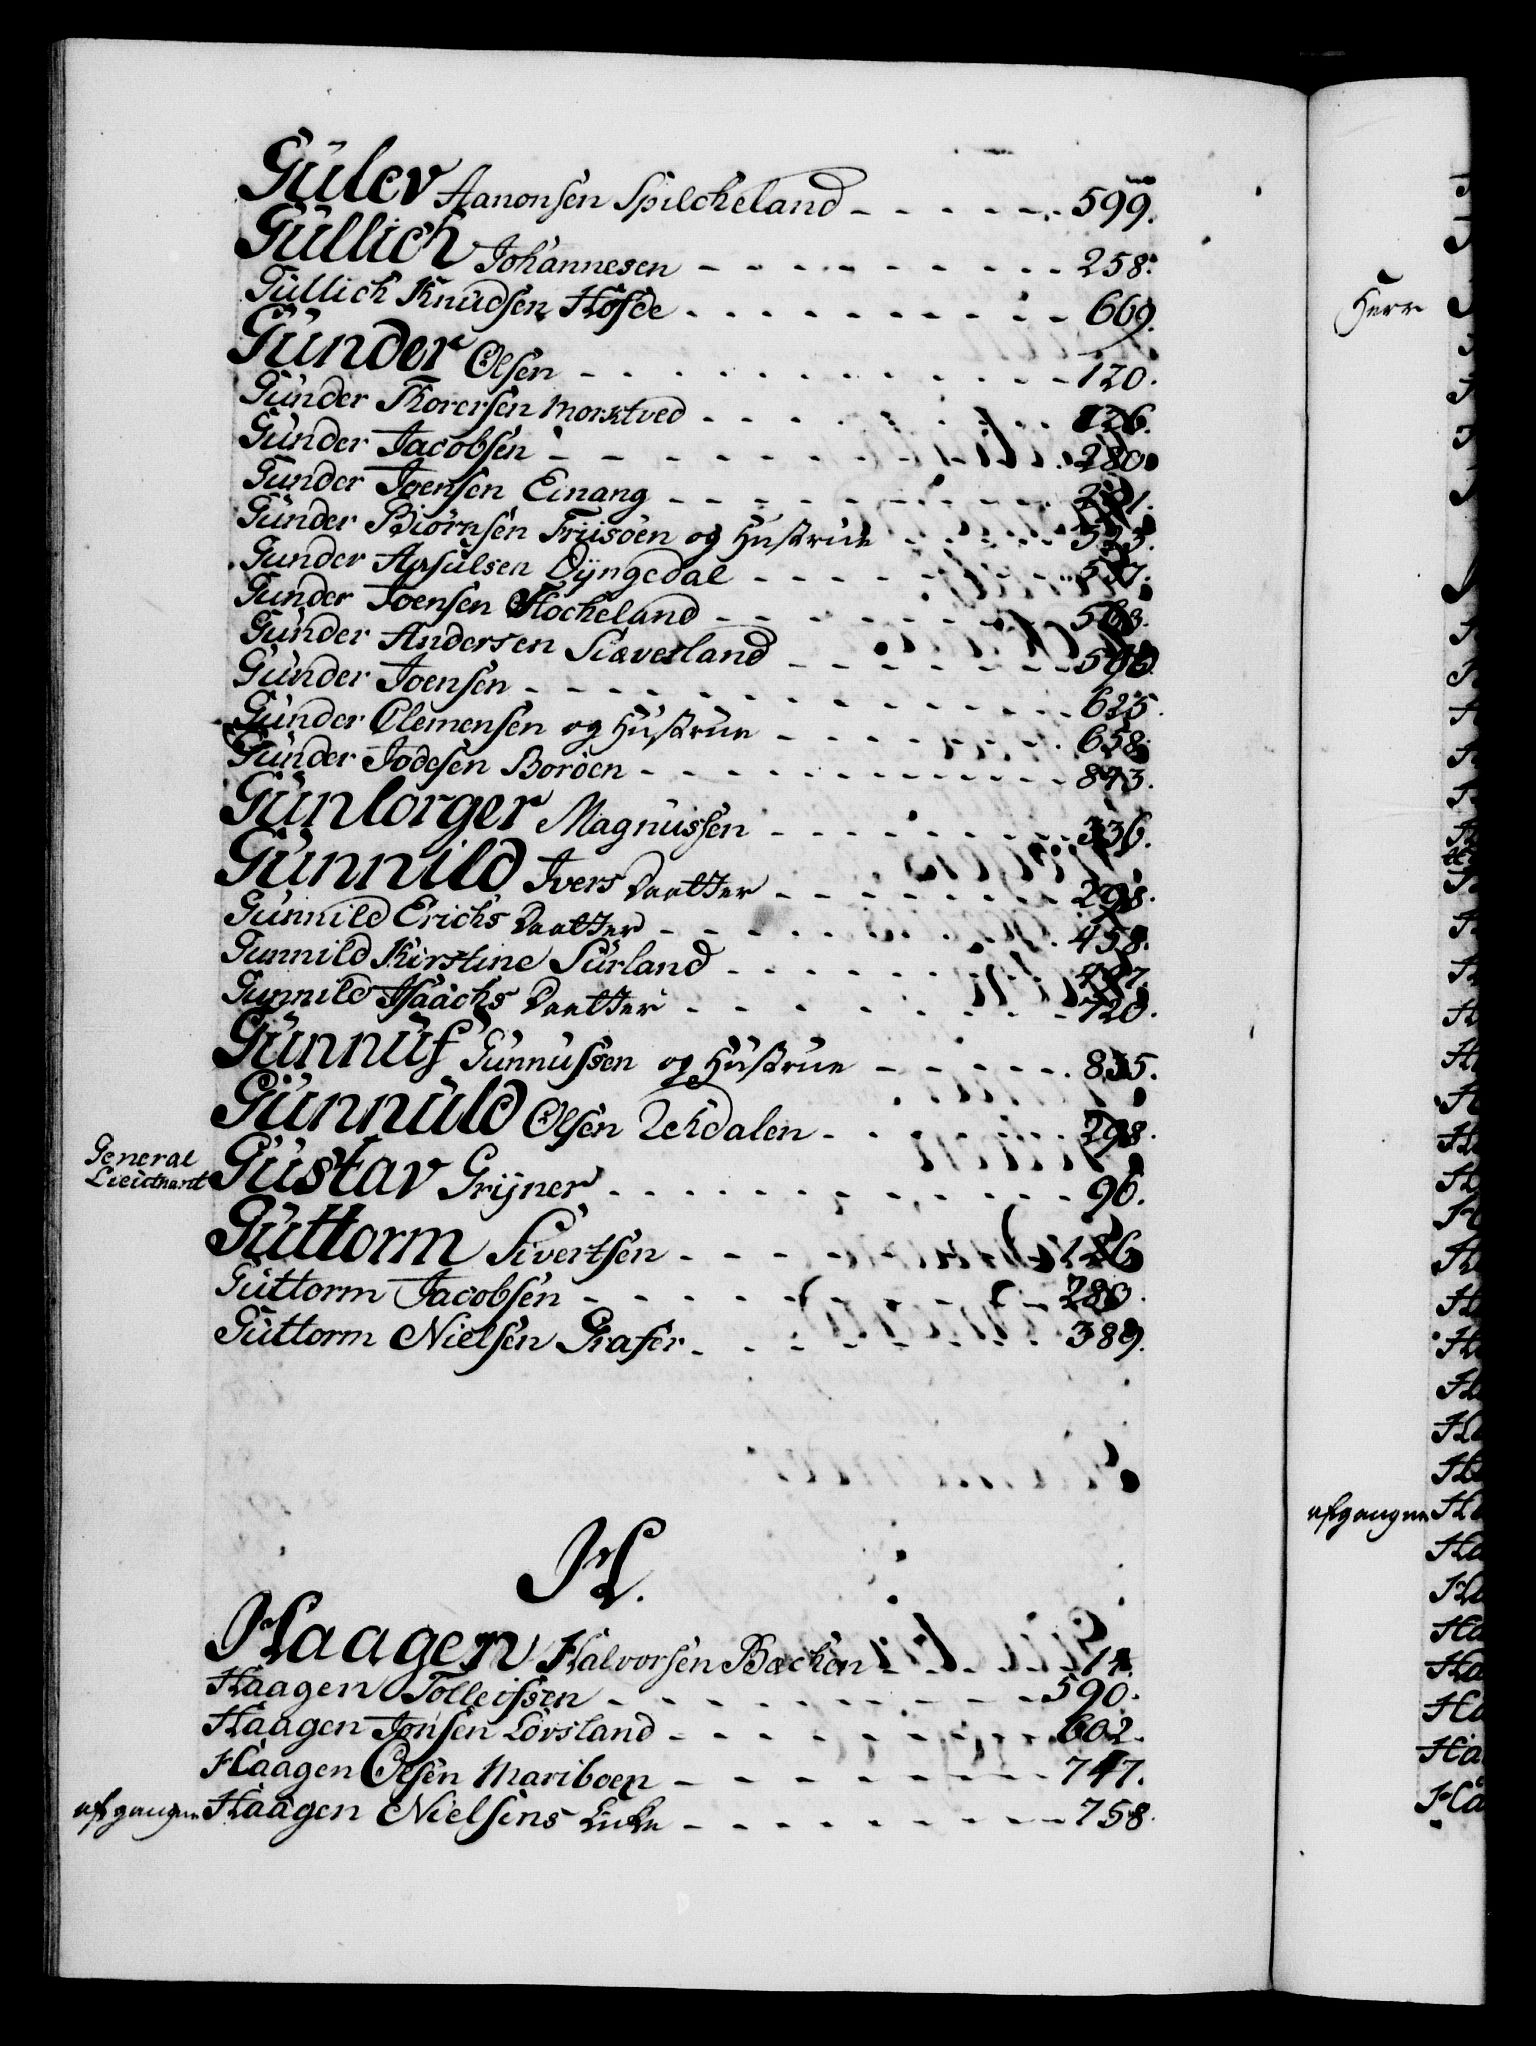 Gulev Aanonsen Spilcheland - - - - - - 599.
Gullich Johannesen - - - - - - - - - - 258.
Gullich Knudsen Hofde - - - - - - - - - 669.
Gunder Olsen - - - - - - - - - - - - 120.
Gunder Thorersen Morktved - - - - - - - 126.
Gunder Jacobsen - - - - - - - - - - 280.
Gunder Joensen Einang - - - - - - - -
Gunder Biörnsen Friisöen og Hustrue - - - - -
Gunder Apsulsen Dÿngedal - - - - - - - 537.
Gunder Joensen Stocheland - - - - - - - 568.
Gunder Andersen Siæverland - - - - - - -
Gunder Joensen - - - - - - - - - - - - 625.
Gunder Clemensen og Hustrue - - - - - - 658.
Gunder Jodesen Boröen - - - - - - - - - - 843.
Gunlorger Magnussen - - - - - - - - 336.
Gunnild Ivers Daatter - - - - - - - - 298.
Gunnild Erichs Daatter - - - - - - - - 458.
Gunnild Kirstine Surland - - - - - - - 497.
Gunnild Isaachs Daatter - - - - - - - - 720.
Gunnuf Gunnufsen og Hustrue - - - - - 835.
Gunnuld Olsen Uchdalen - - - - - - 298.
General
Lieutnant Gustav Grÿner - - - - - - - - - - 96.
Guttorm Sivertsen - - - - - - - - 126.
Guttorm Jacobsen - - - - - - - - - 280.
Guttorm Nielsen Grafer - - - - - - - - 389.
H.
Haagen Halvorsen Bachen - - - - - 14.
Haagen Tolleifsen - - - - - - - - - - 590.
Haagen Jonsen Lövsland - - - - - - - - 602.
Haagen Olsen Mariboen - - - - - - - - - 747.
afgangne Haagen Nielsens Enke - - - - - - - - - 758.
Herr
afgangne